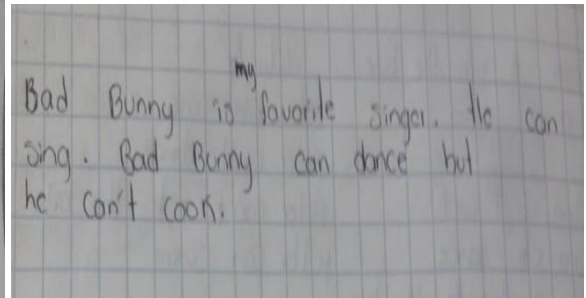 Bad Bunny is my favorite singer. He can
sing. Bad Bunny can dance but
he can't cook.